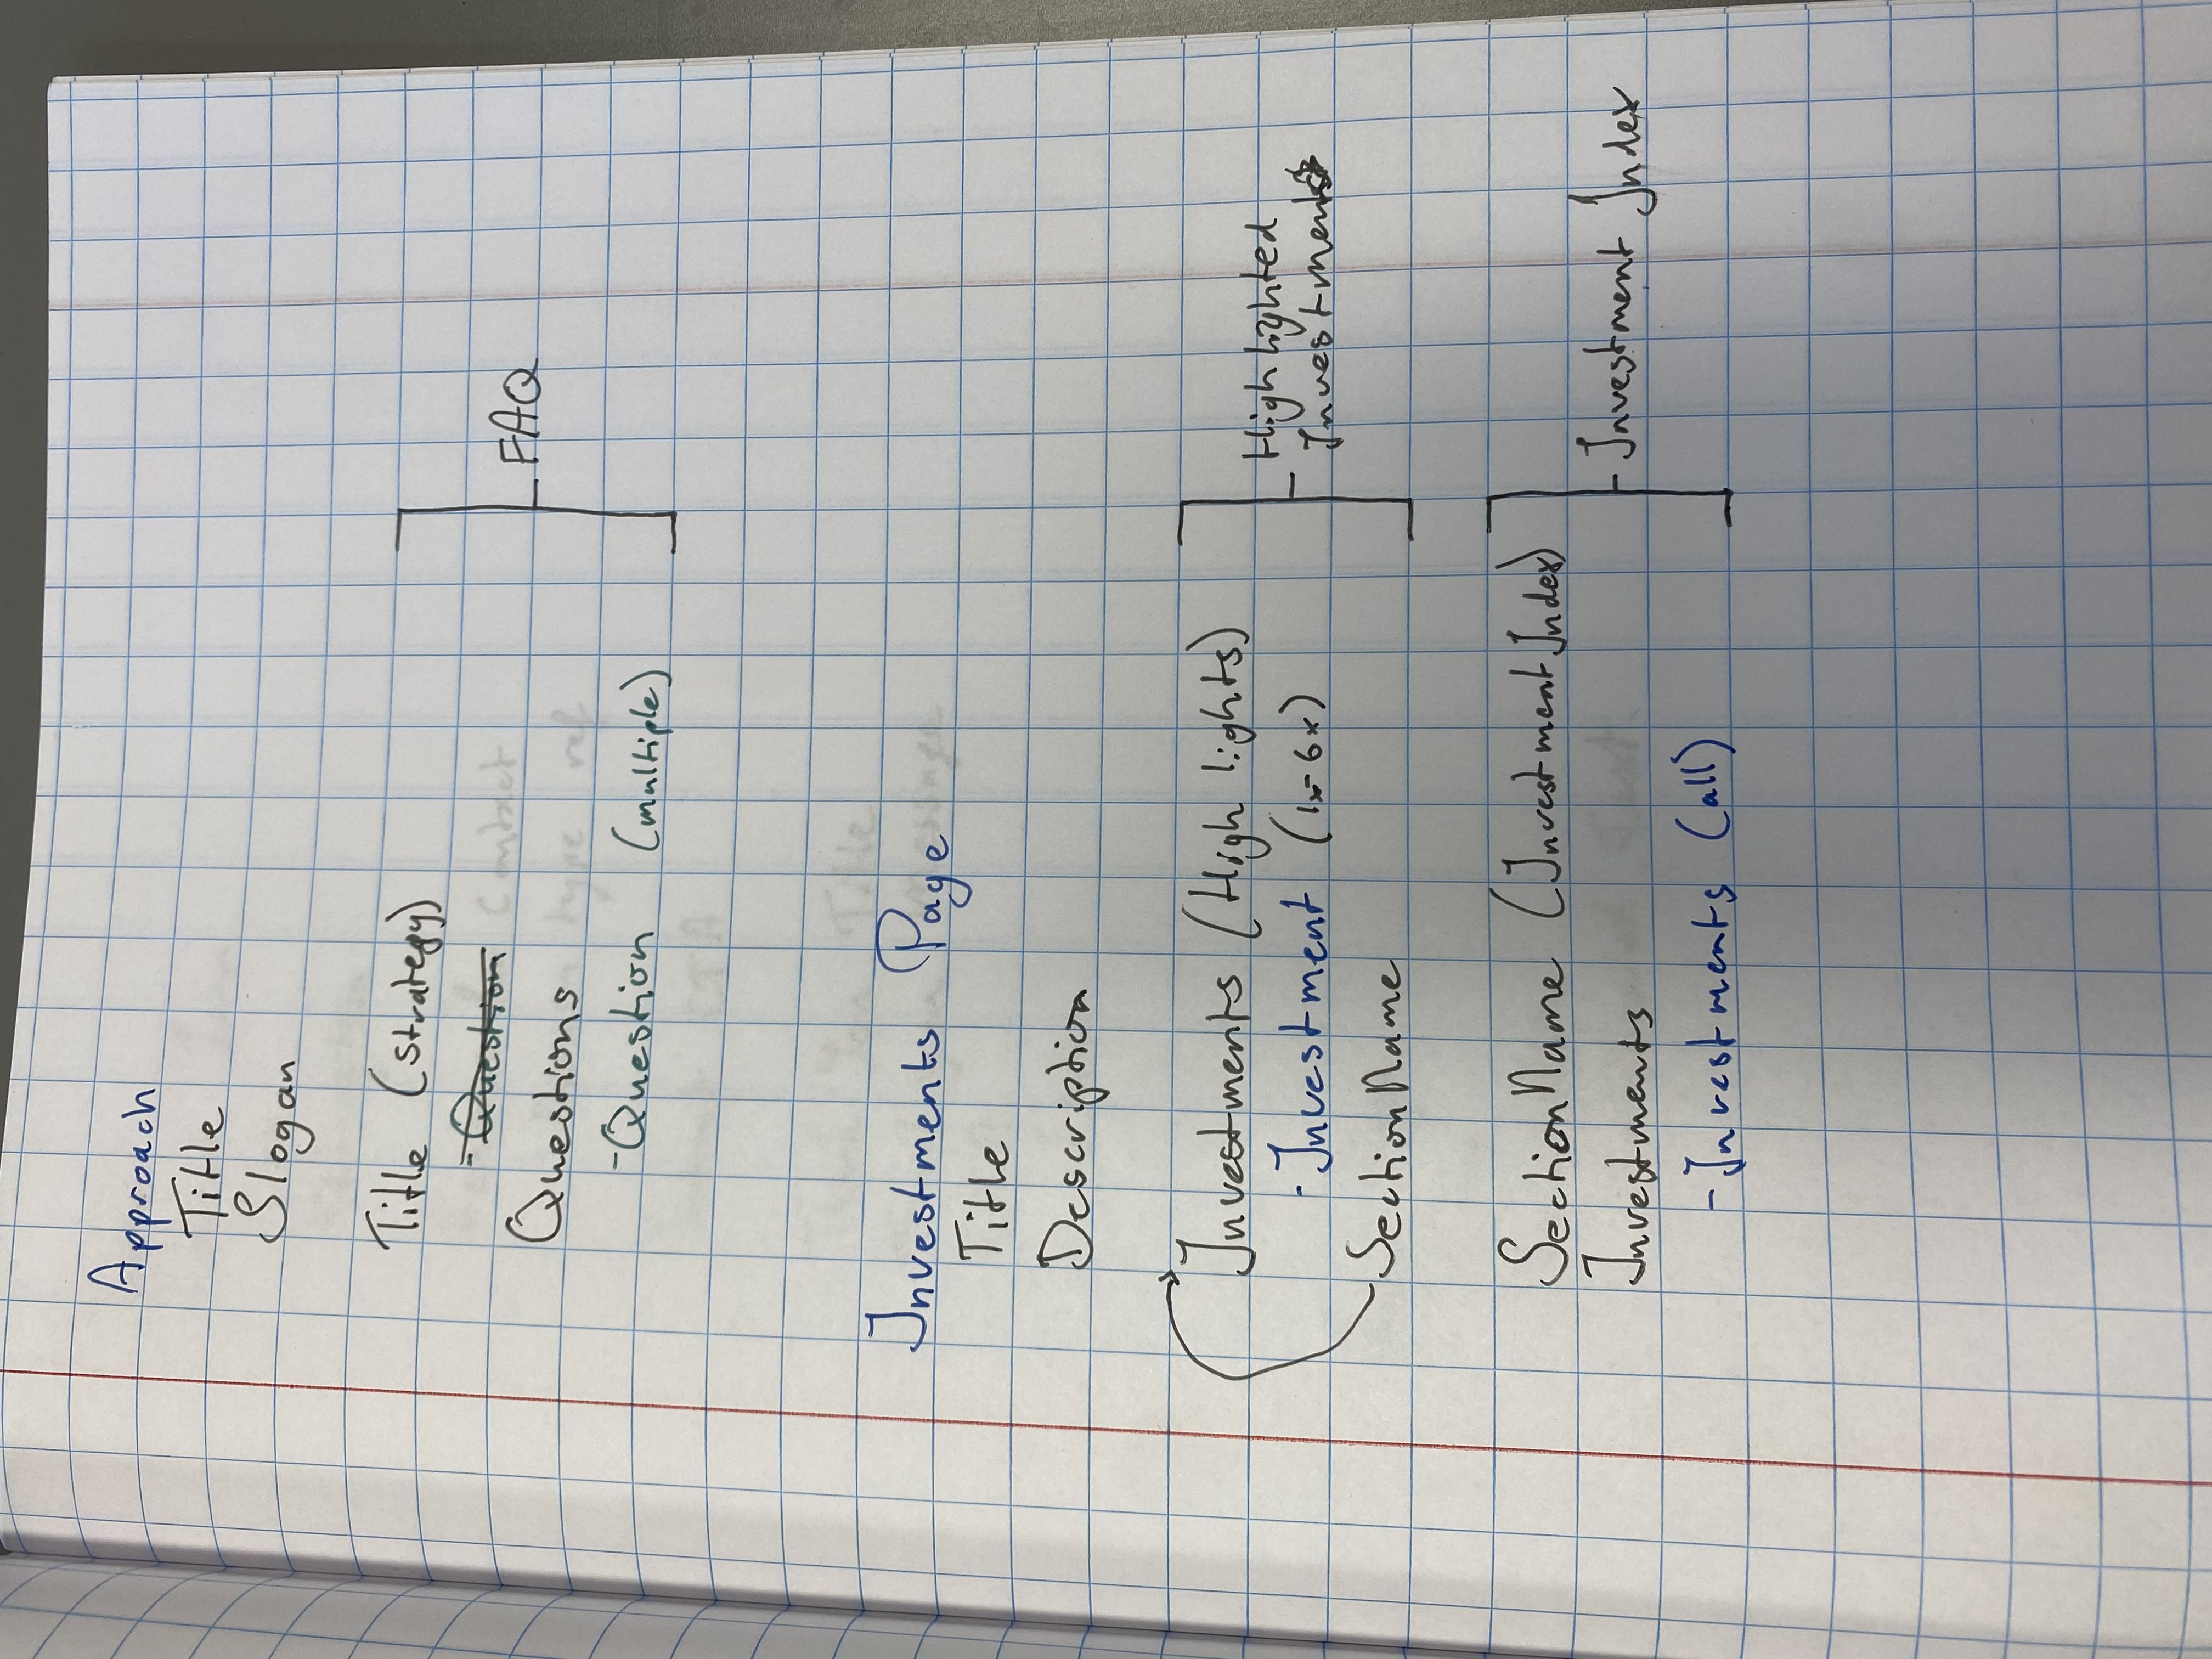 Approach
Title
Slogan
Title (strategy)
- Question
Questions
- Question (multiple)
FAQ
Investments Page
Title
Description
Investments (High lights)
- Investment (1x-6x)
SectionName
Highlighted
Investments
SectionName (Investment Index)
Investments
- Investments (all)
Investment Index